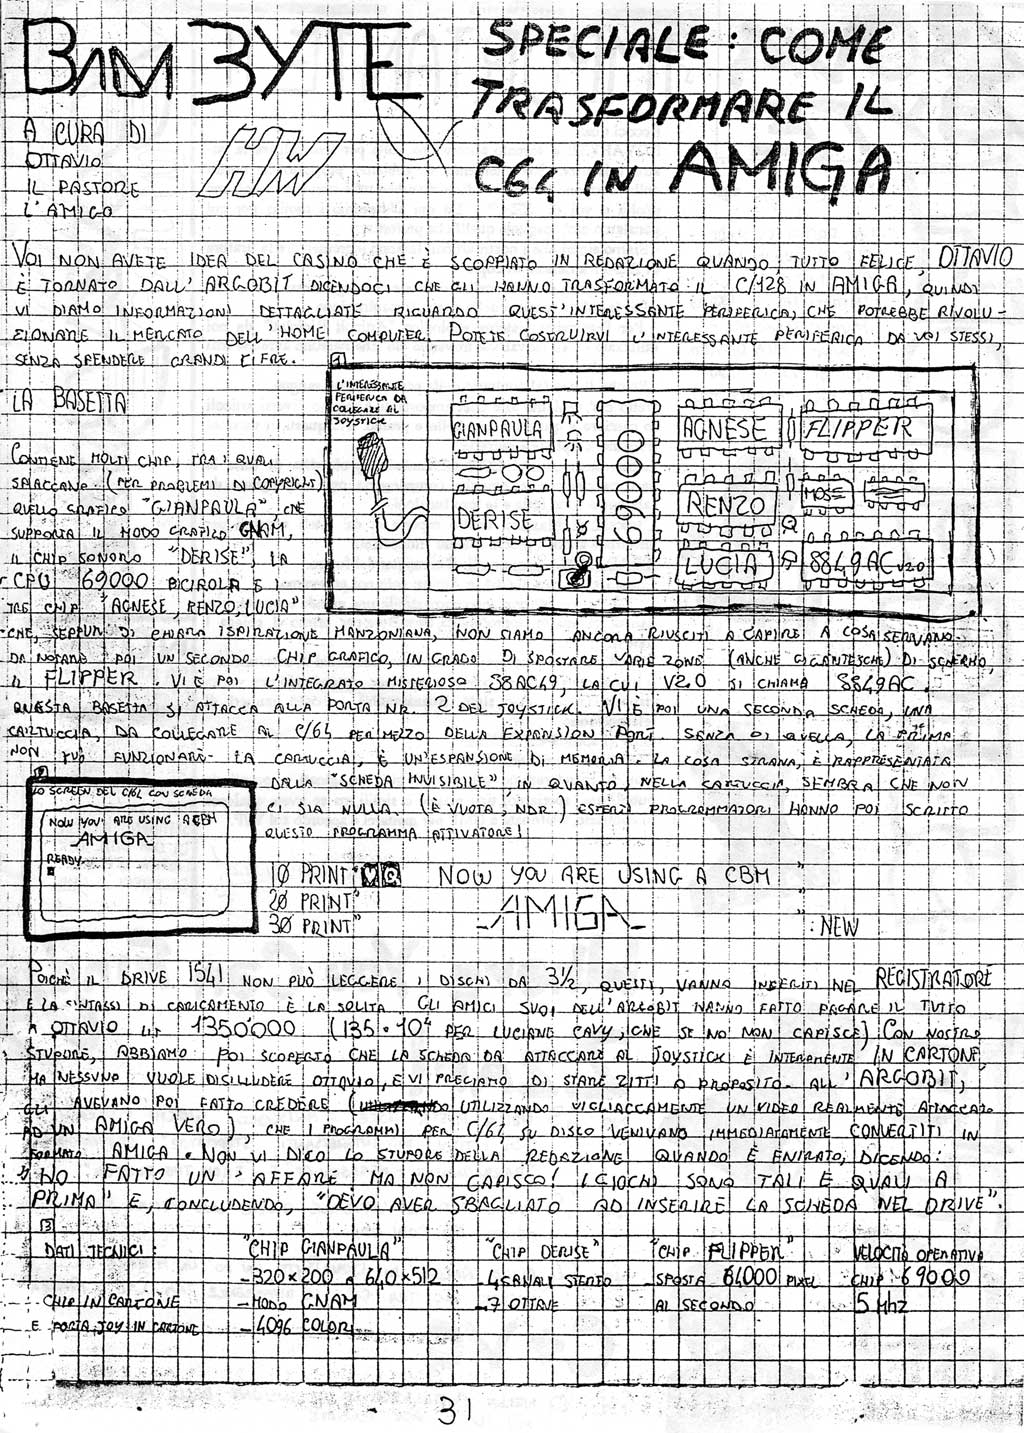 BAM BYTE
SPECIALE: COME
TRASFORMARE IL
C64 IN AMIGA
A CURA DI
OTTAVIO
IL PASTORE
L'AMIGO
HW
VOI NON AVETE IDEA DEL CASINO CHE È SCOPPIATO IN REDAZIONE QUANDO, TUTTO FELICE, OTTAVIO
È TORNATO DALL'ARGOBIT DICENDOCI CHE GLI HANNO TRASFORMATO IL C/128 IN AMIGA, QUINDI
VI DIAMO INFORMAZIONI DETTAGLIATE RIGUARDO QUEST'INTERESSANTE PERIFERICA, CHE POTREBBE RIVOLU-
ZIONARE IL MERCATO DELL'HOME COMPUTER. POTETE COSTRUIRVI L'INTERESSANTE PERIFERICA DA VOI STESSI,
SENZA SPENDERE GRANDI CIFRE.
1
L'INTERESSANTE
PERIFERICA DA
COLLEGARE AL
JOYSTICK
GIANPAULA
DERISE
69000
AGNESE
RENZO
LUCIA
FLIPPER
MOSE
8849AC V2.0
LA BASETTA
CONTIENE MOLTI CHIP, TRA I QUALI
SPICCANO (PER PROBLEMI DI COPYRIGHT)
QUELLO GRAFICO "GIANPAULA", CHE
SUPPORTA IL MODO GRAFICO GNAM,
IL CHIP SONORO "DERISE", LA
CPU 69000 E I
TRE CHIP "AGNESE, RENZO, LUCIA"
CHE, SEPPUR DI CHIARA ISPIRAZIONE MANZONIANA, NON SIAMO ANCORA RIUSCITI A CAPIRE A COSA SERVANO.
DA NOTARE POI UN SECONDO CHIP GRAFICO, IN GRADO DI SPOSTARE VARIE ZONE (ANCHE GIGANTESCHE) DI SCHERMO,
IL FLIPPER. VI È POI L'INTEGRATO MISTERIOSO 88AC49, LA CUI V2.0 SI CHIAMA 8849AC.
QUESTA BASETTA SI ATTACCA ALLA PORTA NR. 2 DEL JOYSTICK. VI È POI UNA SECONDA SCHEDA, UNA
CARTUCCIA, DA COLLEGARE AL C/64 PER MEZZO DELLA EXPANSION PORT. SENZA DI QUELLA, LA PRIMA
NON PUÒ FUNZIONARE. LA CARTUCCIA, È UN'ESPANSIONE DI MEMORIA. LA COSA STRANA, È RAPPRESENTATA
DALLA "SCHEDA INVISIBILE", IN QUANTO, NELLA CARTUCCIA, SEMBRA CHE NON
CI SIA NULLA. (È VUOTA, NDR.) ESPERTI PROGRAMMATORI HANNO POI SCRITTO
QUESTO PROGRAMMA ATTIVATORE!
2
LO SCREEN DEL C/64 CON SCHEDA
NOW YOU ARE USING A CBM
AMIGA
READY.
10 PRINT"♥Q NOW YOU ARE USING A CBM "
20 PRINT" AMIGA
30 PRINT" ":NEW
POICHÈ IL DRIVE 1541 NON PUÒ LEGGERE I DISCHI DA 3½, QUESTI, VANNO INSERITI NEL REGISTRATORE
E LA SINTASSI DI CARICAMENTO È LA SOLITA. GLI AMICI SUOI DELL'ARGOBIT HANNO FATTO PAGARE IL TUTTO
A OTTAVIO LIT 1350'000 (135·10⁴ PER LUCIANE CAVY, CHE SE NO NON CAPISCE) CON NOSTRO
STUPORE, ABBIAMO POI SCOPERTO CHE LA SCHEDA DA ATTACCARE AL JOYSTICK È INTERAMENTE IN CARTONE,
MA NESSUNO VUOLE DISILLUDERE OTTAVIO, E VI PREGIAMO DI STARE ZITTI A PROPOSITO. ALL'ARGOBIT,
GLI AVEVANO POI FATTO CREDERE ( UTILIZZANDO VIGLIACCAMENTE UN VIDEO REALMENTE ATTACCATO
AD UN AMIGA VERO), CHE I PROGRAMMI PER C/64 SU DISCO VENIVANO IMMEDIATAMENTE CONVERTITI IN
FORMATO AMIGA. NON VI DICO LO STUPORE DELLA REDAZIONE QUANDO È ENTRATO, DICENDO:
"HO FATTO UN'AFFARE, MA NON CAPISCO! I GIOCHI SONO TALI E QUALI A
PRIMA" E, CONCLUDENDO, "DEVO AVER SBAGLIATO AD INSERIRE LA SCHEDA NEL DRIVE".
3
DATI TECNICI: "CHIP GIANPAULA" "CHIP DERISE" "CHIP FLIPPER" VELOCITÀ OPERATIVA
-320×200 a 640×512 -4 CANALI STEREO SPOSTA 64000 PIXEL CHIP: 69000
CHIP IN CARTONE -MODO GNAM -7 OTTAVE AL SECONDO 5 MHz
E PORTA JOY IN CARTONE -4096 COLORI
31